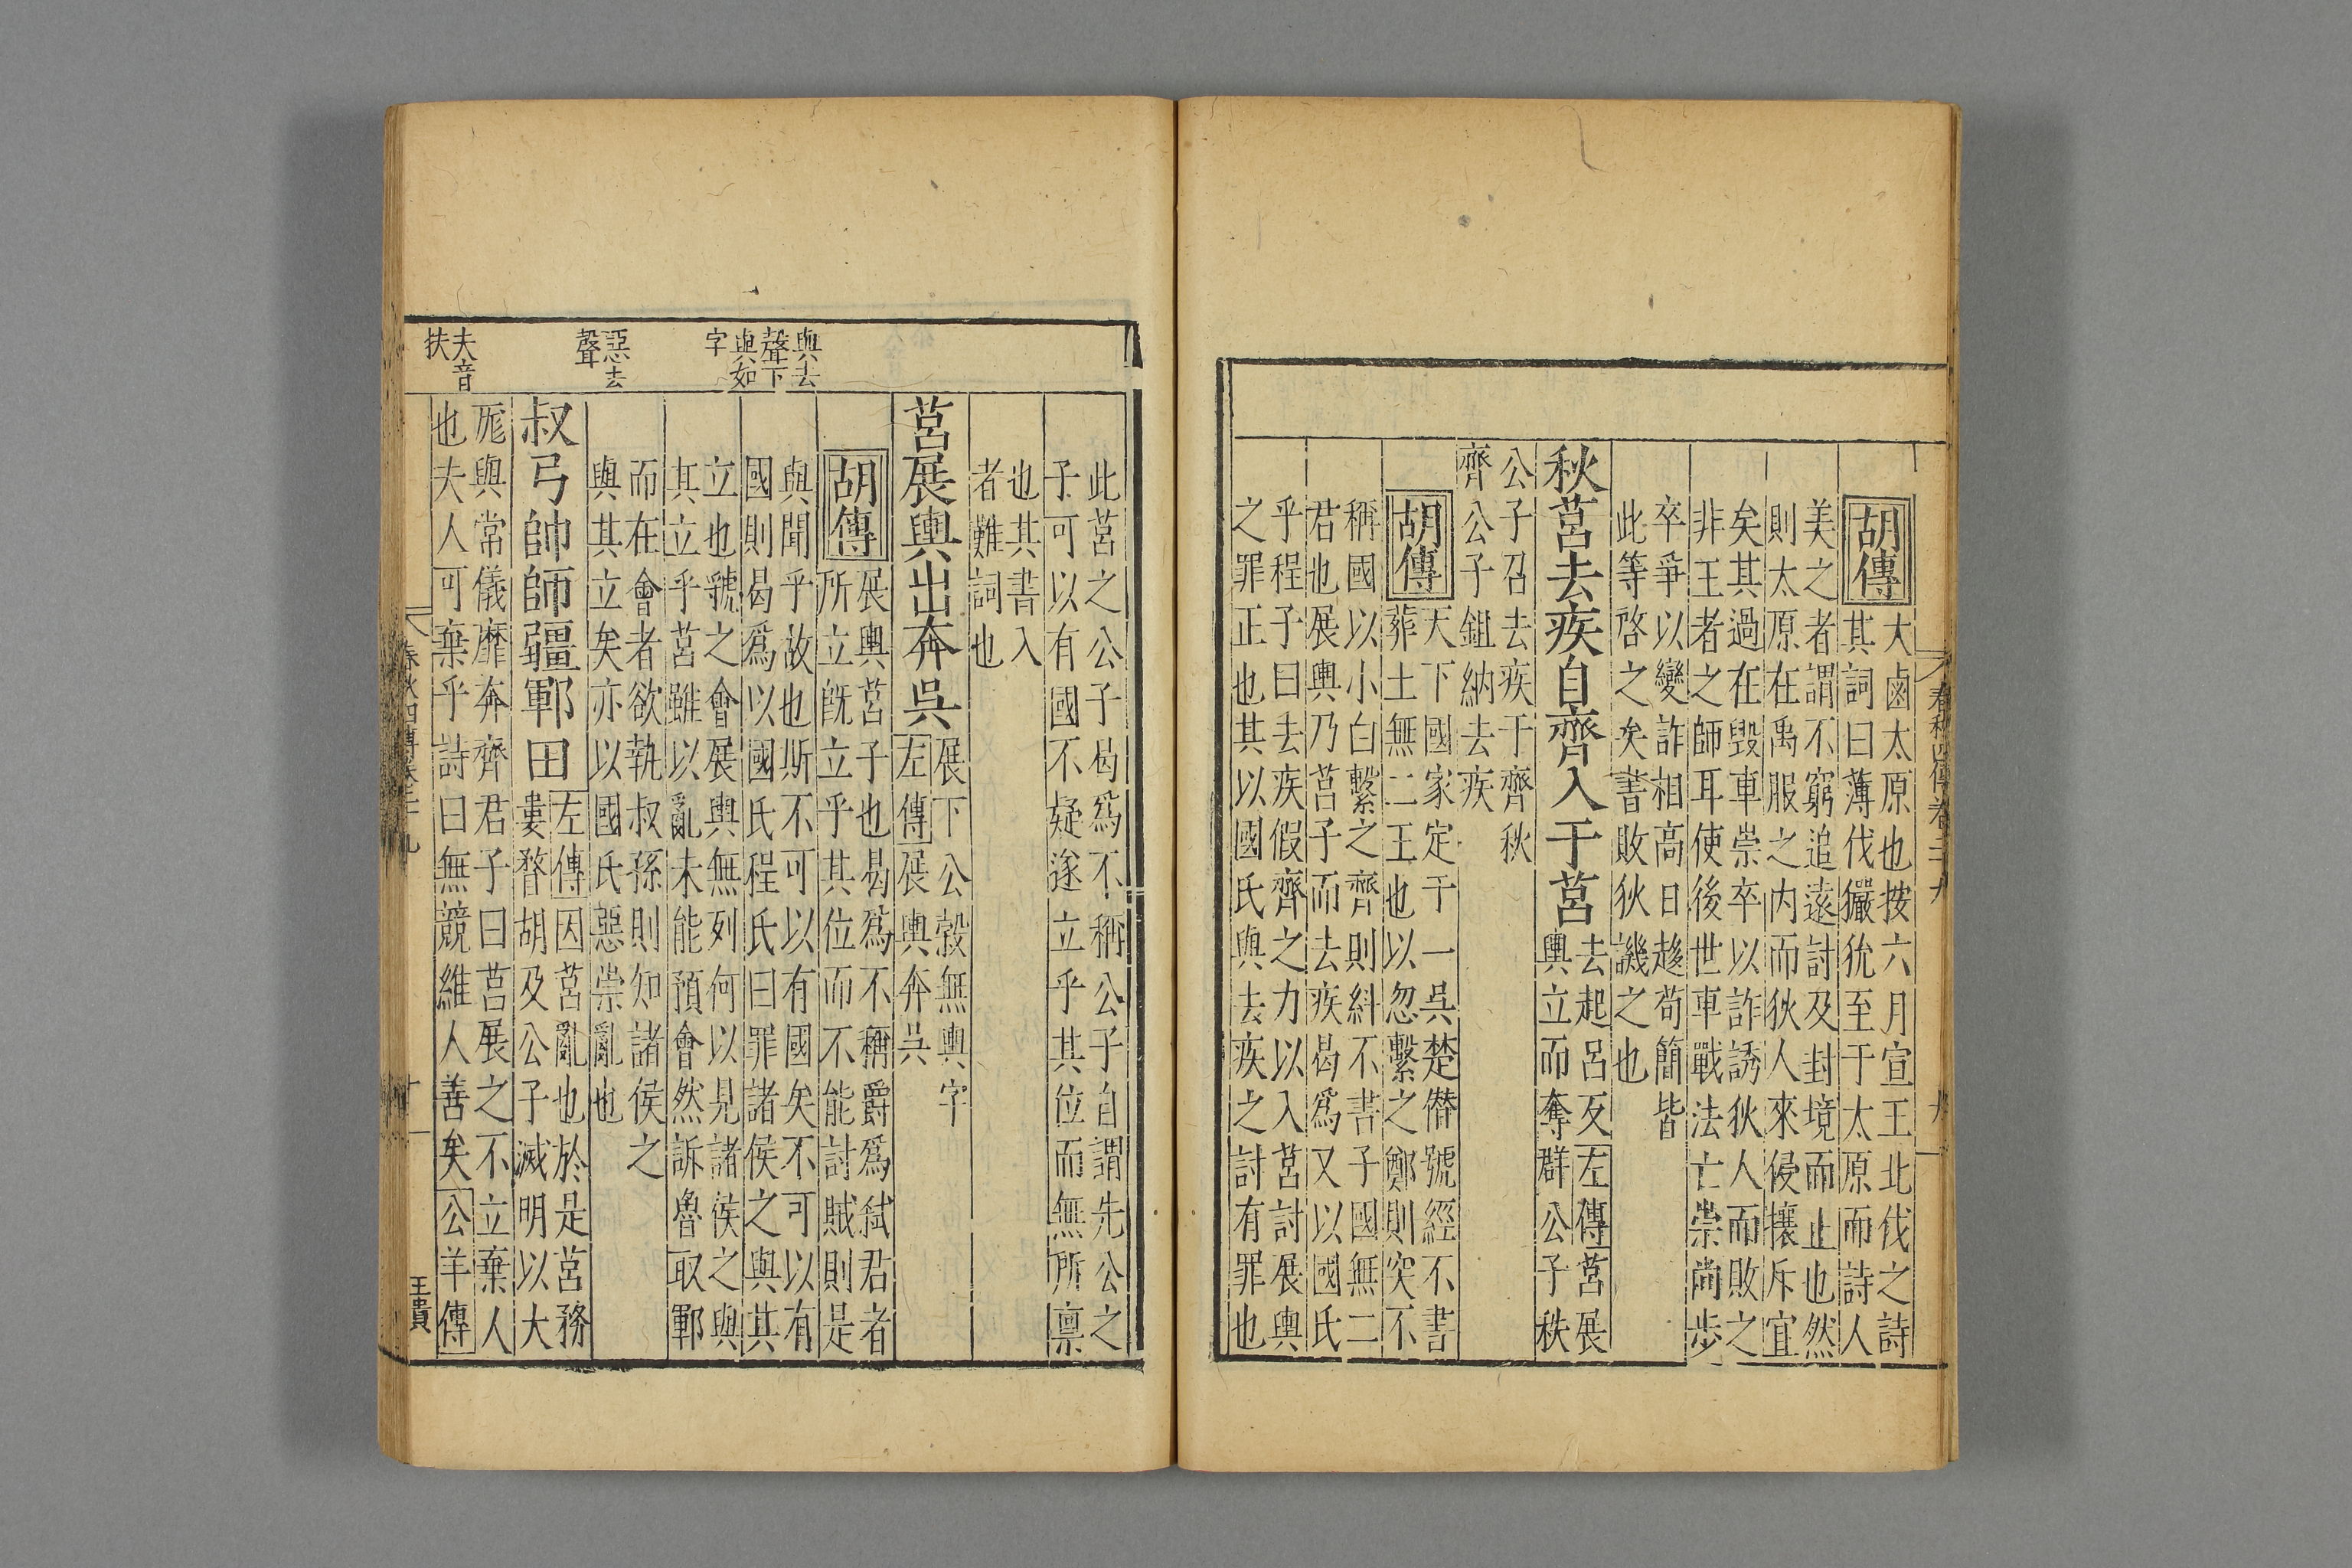 胡傳
大鹵太原也按六月宣王北伐之詩
其詞曰薄伐玁狁至于太原而詩人
美之者謂不窮追遠討及封境而止也然
則太原在禹服之内而狄人來侵攘斥宜
矣其過在毀車崇卒以詐誘狄人而敗之
非王者之師耳使後世車戰法亡崇尚步
卒爭以變詐相高日趍苟簡皆
此等啓之矣書敗狄譏之也
秋莒去疾自齊入于莒
去起呂反左傳莒展
輿立而奪群公子秩
公子召去疾于齊秋
齊公子鉏納去疾
胡傳
天下國家定于一吳楚僭號經不書
葬土無二王也以忽繫之鄭則突不
稱國以小白繫之齊則糾不書子國無二
君也展輿乃莒子而去疾曷爲又以國氏
乎程子曰去疾假齊之力以入莒討展輿
之罪正也其以國氏與去疾之討有罪也
春秋四傳卷二十九
九
此莒之公子曷爲不稱公子自謂先公之
子可以有國不疑遂立乎其位而無所禀
也其書入
者難詞也
莒展輿出奔吳
展下公穀無輿字
左傳展輿奔吳
輿去
聲下
與如
字
胡傳
展輿莒子也曷爲不稱爵爲弑君者
所立旣立乎其位而不能討賊則是
與聞乎故也斯不可以有國矣不可以有
國則曷爲以國氏程氏曰罪諸侯之與其
立也虢之會展輿無列何以見諸侯之與
其立乎莒雖以亂未能預會然訴魯取鄆
而在會者欲執叔孫則知諸侯之
與其立矣亦以國氏惡崇亂也
惡去
聲
叔弓帥師疆鄆田
左傳因莒亂也於是莒務
婁瞀胡及公子滅明以大
厖與常儀靡奔齊君子曰莒展之不立棄人
也夫人可棄乎詩曰無競維人善矣公羊傳
夫音
扶
春秋四傳卷二十九
十一
王貴